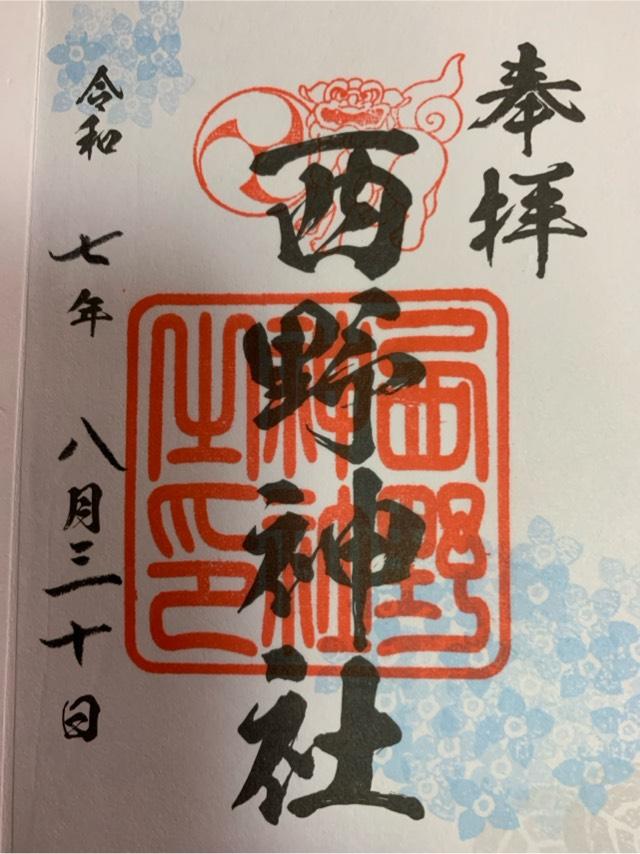 奉拝
西野神社
西野神社之印
令和 七年 八月三十日